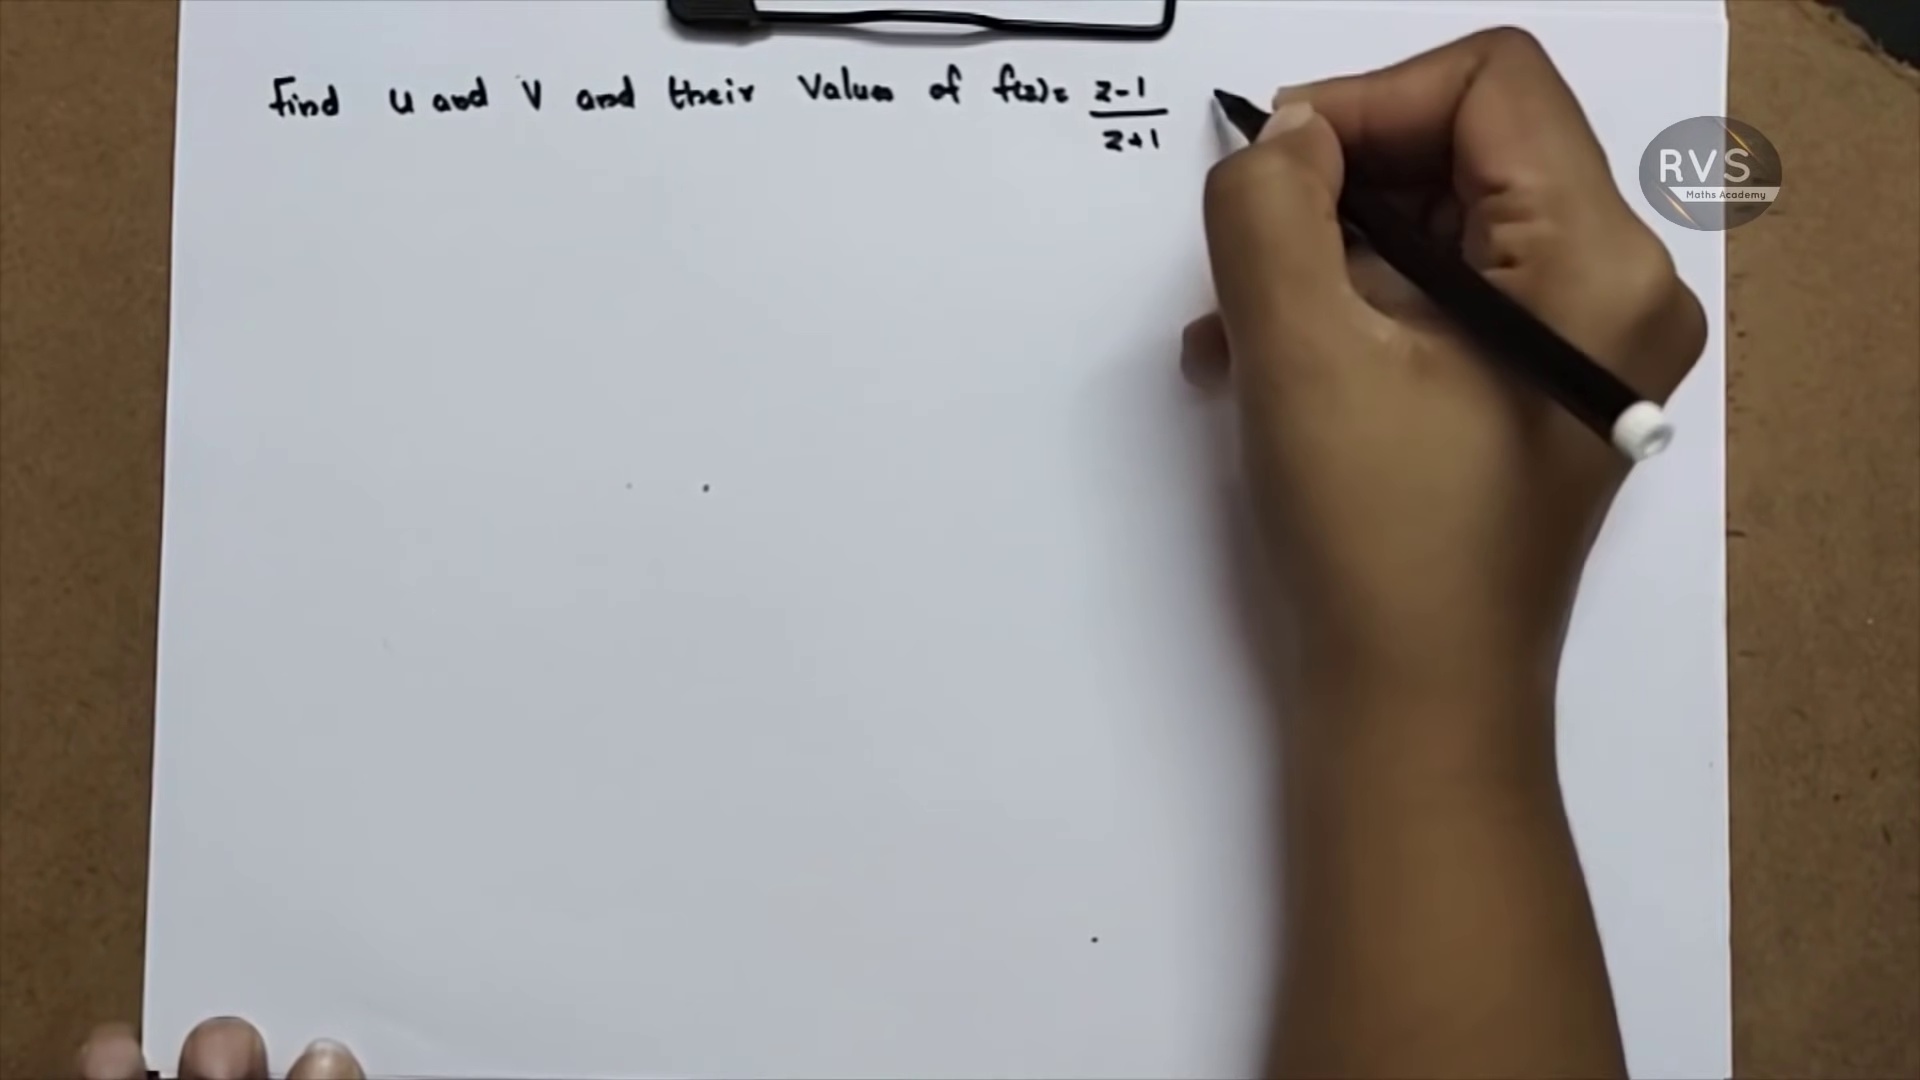 Find u and V and their Values of f(z) = z-1 / z+1
RVS
Maths Academy